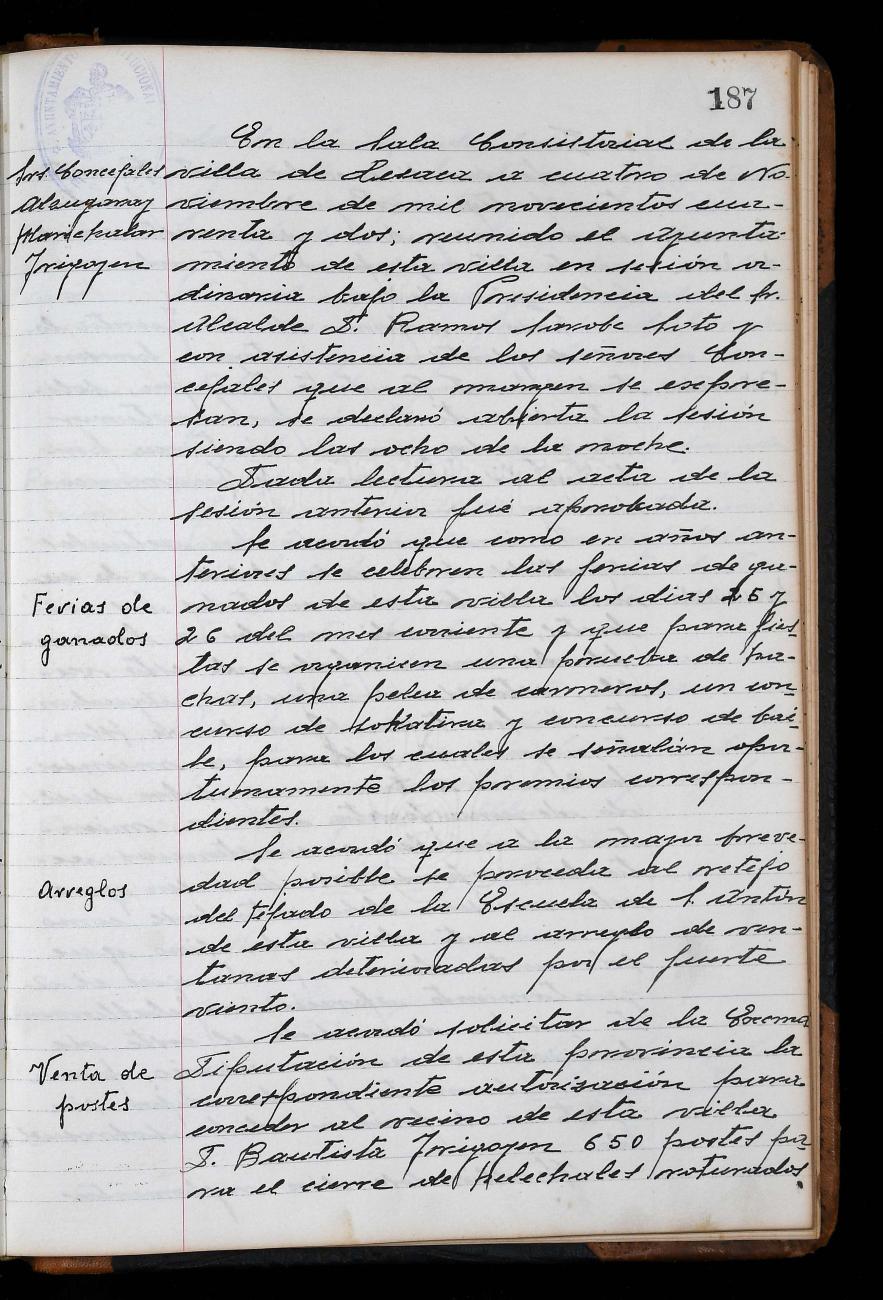 187
AYUNTAMIENTO
En la Sala Consistorial de la
villa de Lesaca a cuatro de No-
viembre de mil novecientos cua-
renta y dos; reunido el Ayunta-
miento de esta villa en sesión or-
dinaria bajo la Presidencia del Sr.
Alcalde D. Ramos Sarobe Soto y
con asistencia de los señores Con-
cejales que al margen se expre-
san, se declaró abierta la sesión
siendo las ocho de la noche.
Srs. Concejales
Alzugaray
Marichalar
Irigoyen
Dada lectura al acta de la
sesión anterior fué aprobada.
Ferias de
ganados
Se acordó que como en años an-
teriores se celebren las ferias de ga-
nados de esta villa los dias 25 y
26 del mes corriente y que para fies-
tas se organicen una prueba de ha-
chas, una pelea de carneros, un con-
curso de sokatira y concurso de bai-
le, para los cuales se señalán opor-
tunamente los premios correspon-
dientes.
Arreglos
Se acordó que a la mayor breve-
dad posible se proceda al retejo
del tejado de la Escuela de S. Antón
de esta villa y al arreglo de ven-
tanas deterioradas por el fuerte
viento.
Venta de
postes
Se acordó solicitar de la Excma
Diputación de esta provincia la
correspondiente autorización para
conceder al vecino de esta villa
D. Bautista Irigoyen 650 postes pa-
ra el cierre de helechales roturados